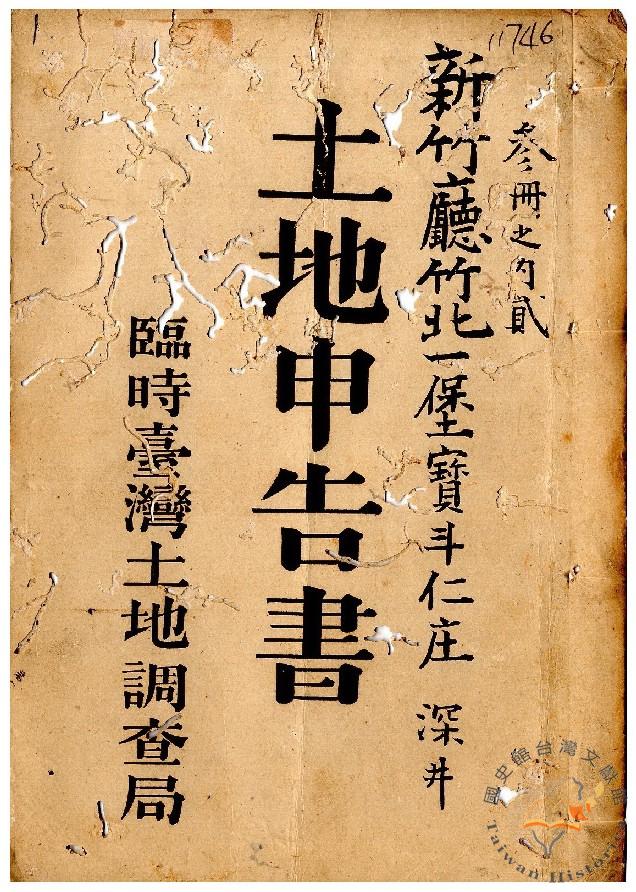 11746
參冊之內貳
新竹廳竹北一堡寶斗仁庄 深井
土地申告書
臨時臺灣土地調查局
國史館台灣文獻館
Taiwan Historica